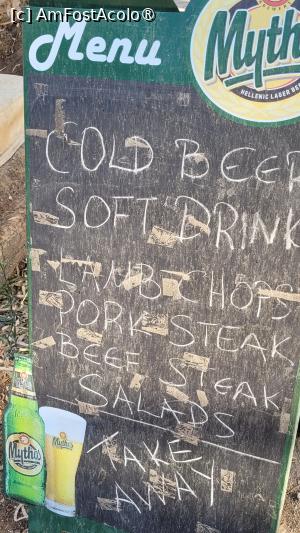 [c] AmFostAcolo®
Menu
Mythos
HELLENIC LAGER BEER
COLD BEER
SOFT DRINK
LAMB CHOPS
PORK STEAK
BEEF STEAK
SALADS
TAKE
AWAY
Mythos
Mythos